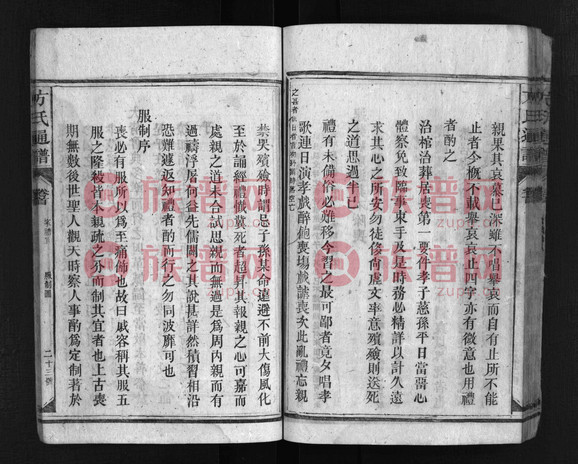 親果其哀慕已深雖不唱舉哀而自有止所不能
止者今槪不載舉哀哀止四字亦有微意也用禮
者酌之
治棺治葬居喪第一要件孝子慈孫平日當留心
體察免致臨事束手及是時務必精詳以計久遠
求其心之所安勿徒像尙虛文率意殯殮則送死
之道思過半已
禮有未備俗必難移今習之最可鄙者竟夕唱孝
歌連日演孝戲醉飽喪場戲謔喪次此亂禮忘親
之甚者
禁哭殯殮時謂忌子孫某命達避不前大傷風化
至於誦經禮懺冀死者超昇其報親之心可嘉而
處親之道未合試思親而無過是爲周內親而有
過禱浮屠何益先儒闢之其說甚詳然積習相沿
恐難遽返知禮者酌而行之勿同波靡可也
服制序
喪必有服所以爲至痛飾也故曰戚容稱其服五
服之隆殺皆本親疏之分而制其宜者也上古喪
期無數後世聖人觀天時察人事酌爲定制著於
方氏通譜
服制圖
二十三
族譜网
zupu.cn